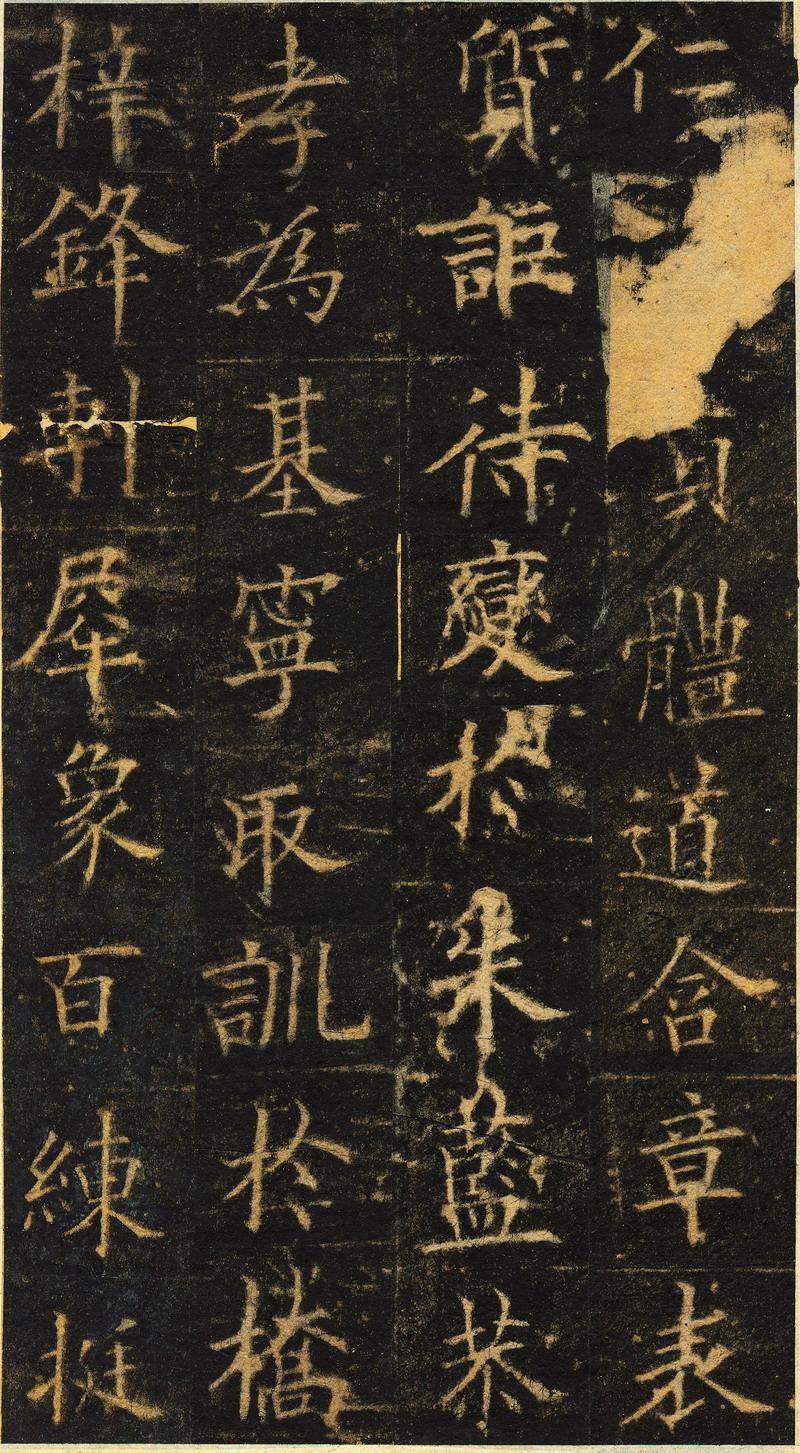 仁具體道含章表
質詎待變於朱藍恭
孝為基寧取訓於橋
梓鋒剸犀象百練挺